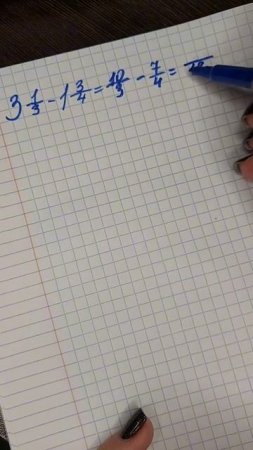 3 1/3 - 1 3/4 = 10/3 - 7/4 =